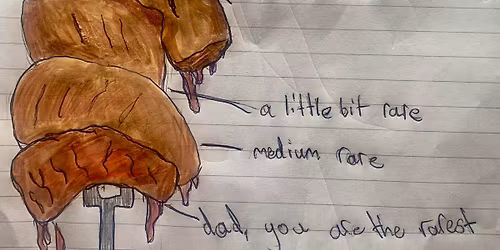 a little bit rare
medium rare
dad, you are the rarest